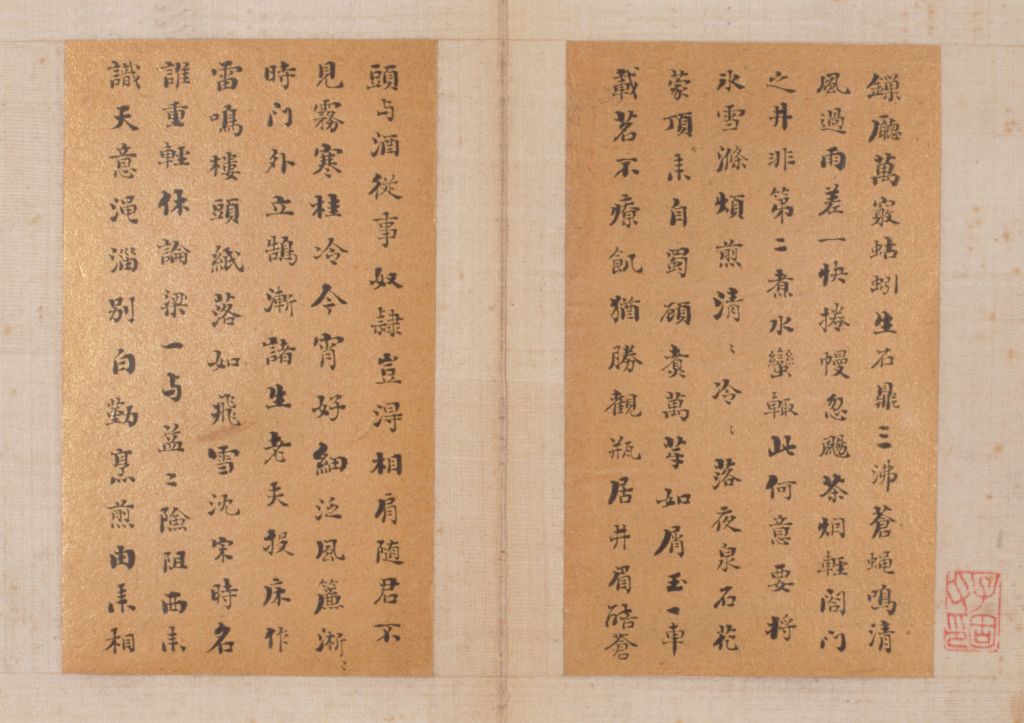 鏁廳萬竅蛄蚓生石鼎三沸蒼蠅鳴清
風過雨差一快捲幔忽颺茶烟輕閤門
之井非第二煮水蠻輙此何意要將
氷雪滌煩煎清〻冷〻落夜泉石花
蒙頂来自蜀碩煑萬茟如屑玉一車
載茗不療飢猶勝觀瓶居井眉酷蒼
頭与酒從事奴隷豈淂相肩随君不
見霧寒桂冷今宵好細泛風簷淅〻
時门外立鵠漸諸生老夫投床作
雷鳴樓頭紙落如飛雪沈宋時名
誰重輊休論梁一与益〻險阻西来
識天意渑淄别白勤烹煎由来相